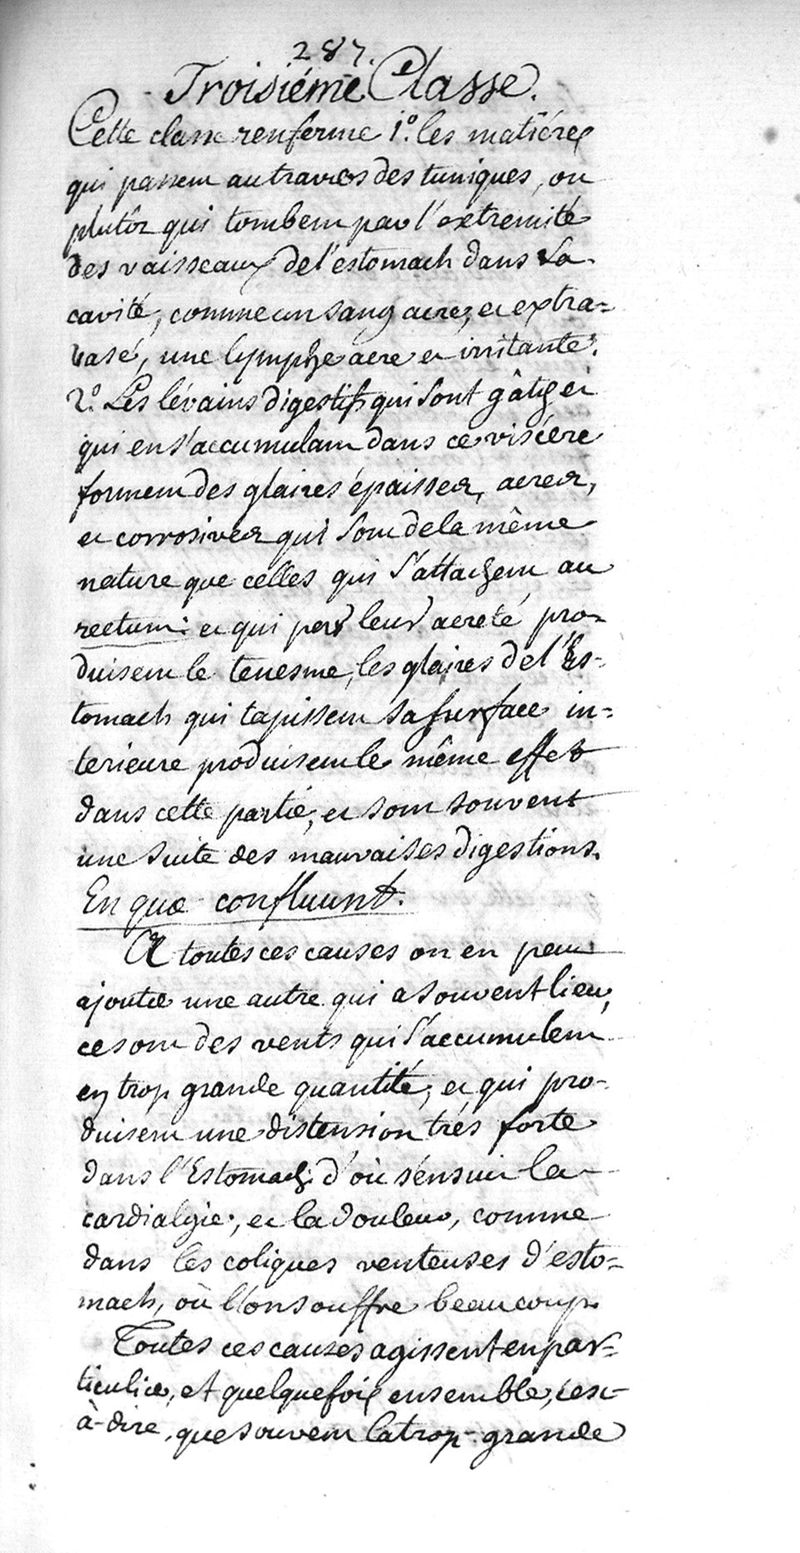 287.
Troisiéme Classe.
Cette classe renferme 1.° les matiéres
qui passent au travers des tuniques, ou
plutôt qui tombent par l'extremité
des vaisseaux de l'estomach dans sa
cavité, comme un sang acre, et extra=
vasé, une lymphe acre et irritante.
2.° Les lévains digestifs qui sont gâtés et
qui en s'accumulant dans ce viscére
forment des glaires épaisses, acres,
et corrosives qui sont de la même
nature que celles qui s'attachent au
rectum: et qui par leur acreté pro-
duisent le tenesme, les glaires de l'Es-
tomach qui tapissent sa surface in=
terieure produisent le même effet
dans cette partie, et sont souvent
une suite des mauvaises digestions.
En quæ confluunt.
A toutes ces causes on en peut
ajouter une autre qui a souvent lieu,
ce sont des vents qui s'accumulent
en trop grande quantité, et qui pro-
duisent une distension trés forte
dans l'Estomach d'où s'énsuit la
cardialgie, et la douleur, comme
dans les coliques venteuses d'esto=
mach, où l'on souffre beaucoup.
Toutes ces causes agissent en par=
ticulier, et quelquefois ensemble, c'est-
à-dire, que souvent la trop grande